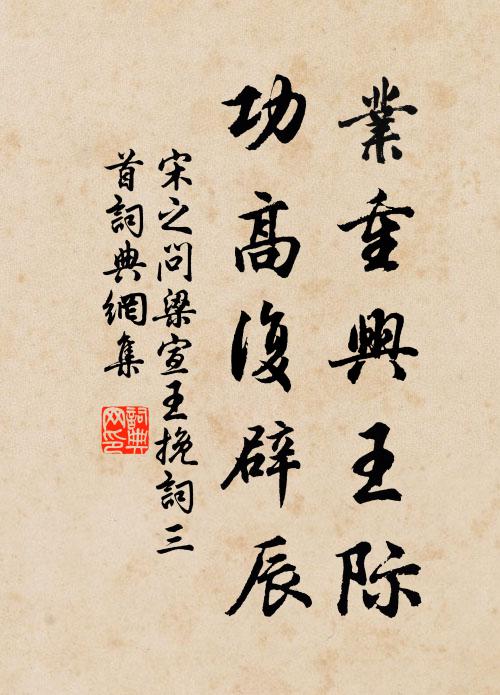 業重興王際
功高復辟辰
宋之问梁宣王挽詞三
首詞典網集
詞典
网印